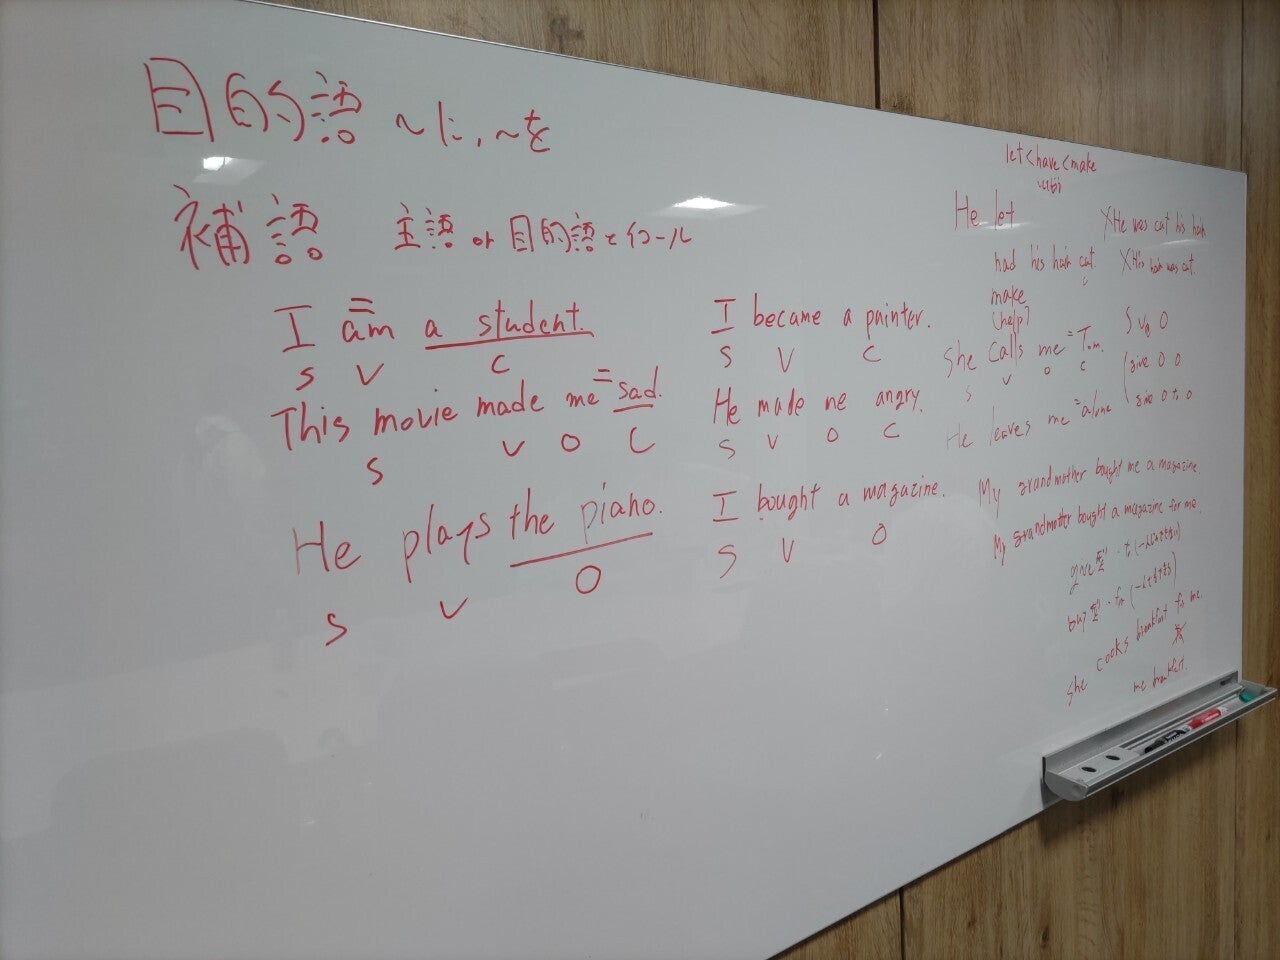 目的語 〜に、〜を
補語 主語 or 目的語とイコール
I am a student.
S V C
This movie made me = sad.
S V O C
He plays the piano.
S V O
I became a painter.
S V C
He made me angry.
S V O C
I bought a magazine.
S V O
let < have < make
He let
had his hair cut.
C
make
(help)
X He was cut his hair
X His hair was cut.
She calls me = Tom.
S V O C
He leaves me = alone
S V O
give O O
give O to O
My grandmother bought me a magazine.
My grandmother bought a magazine for me.
give型
buy型 for
She cooks breakfast for me.
me breakfast.